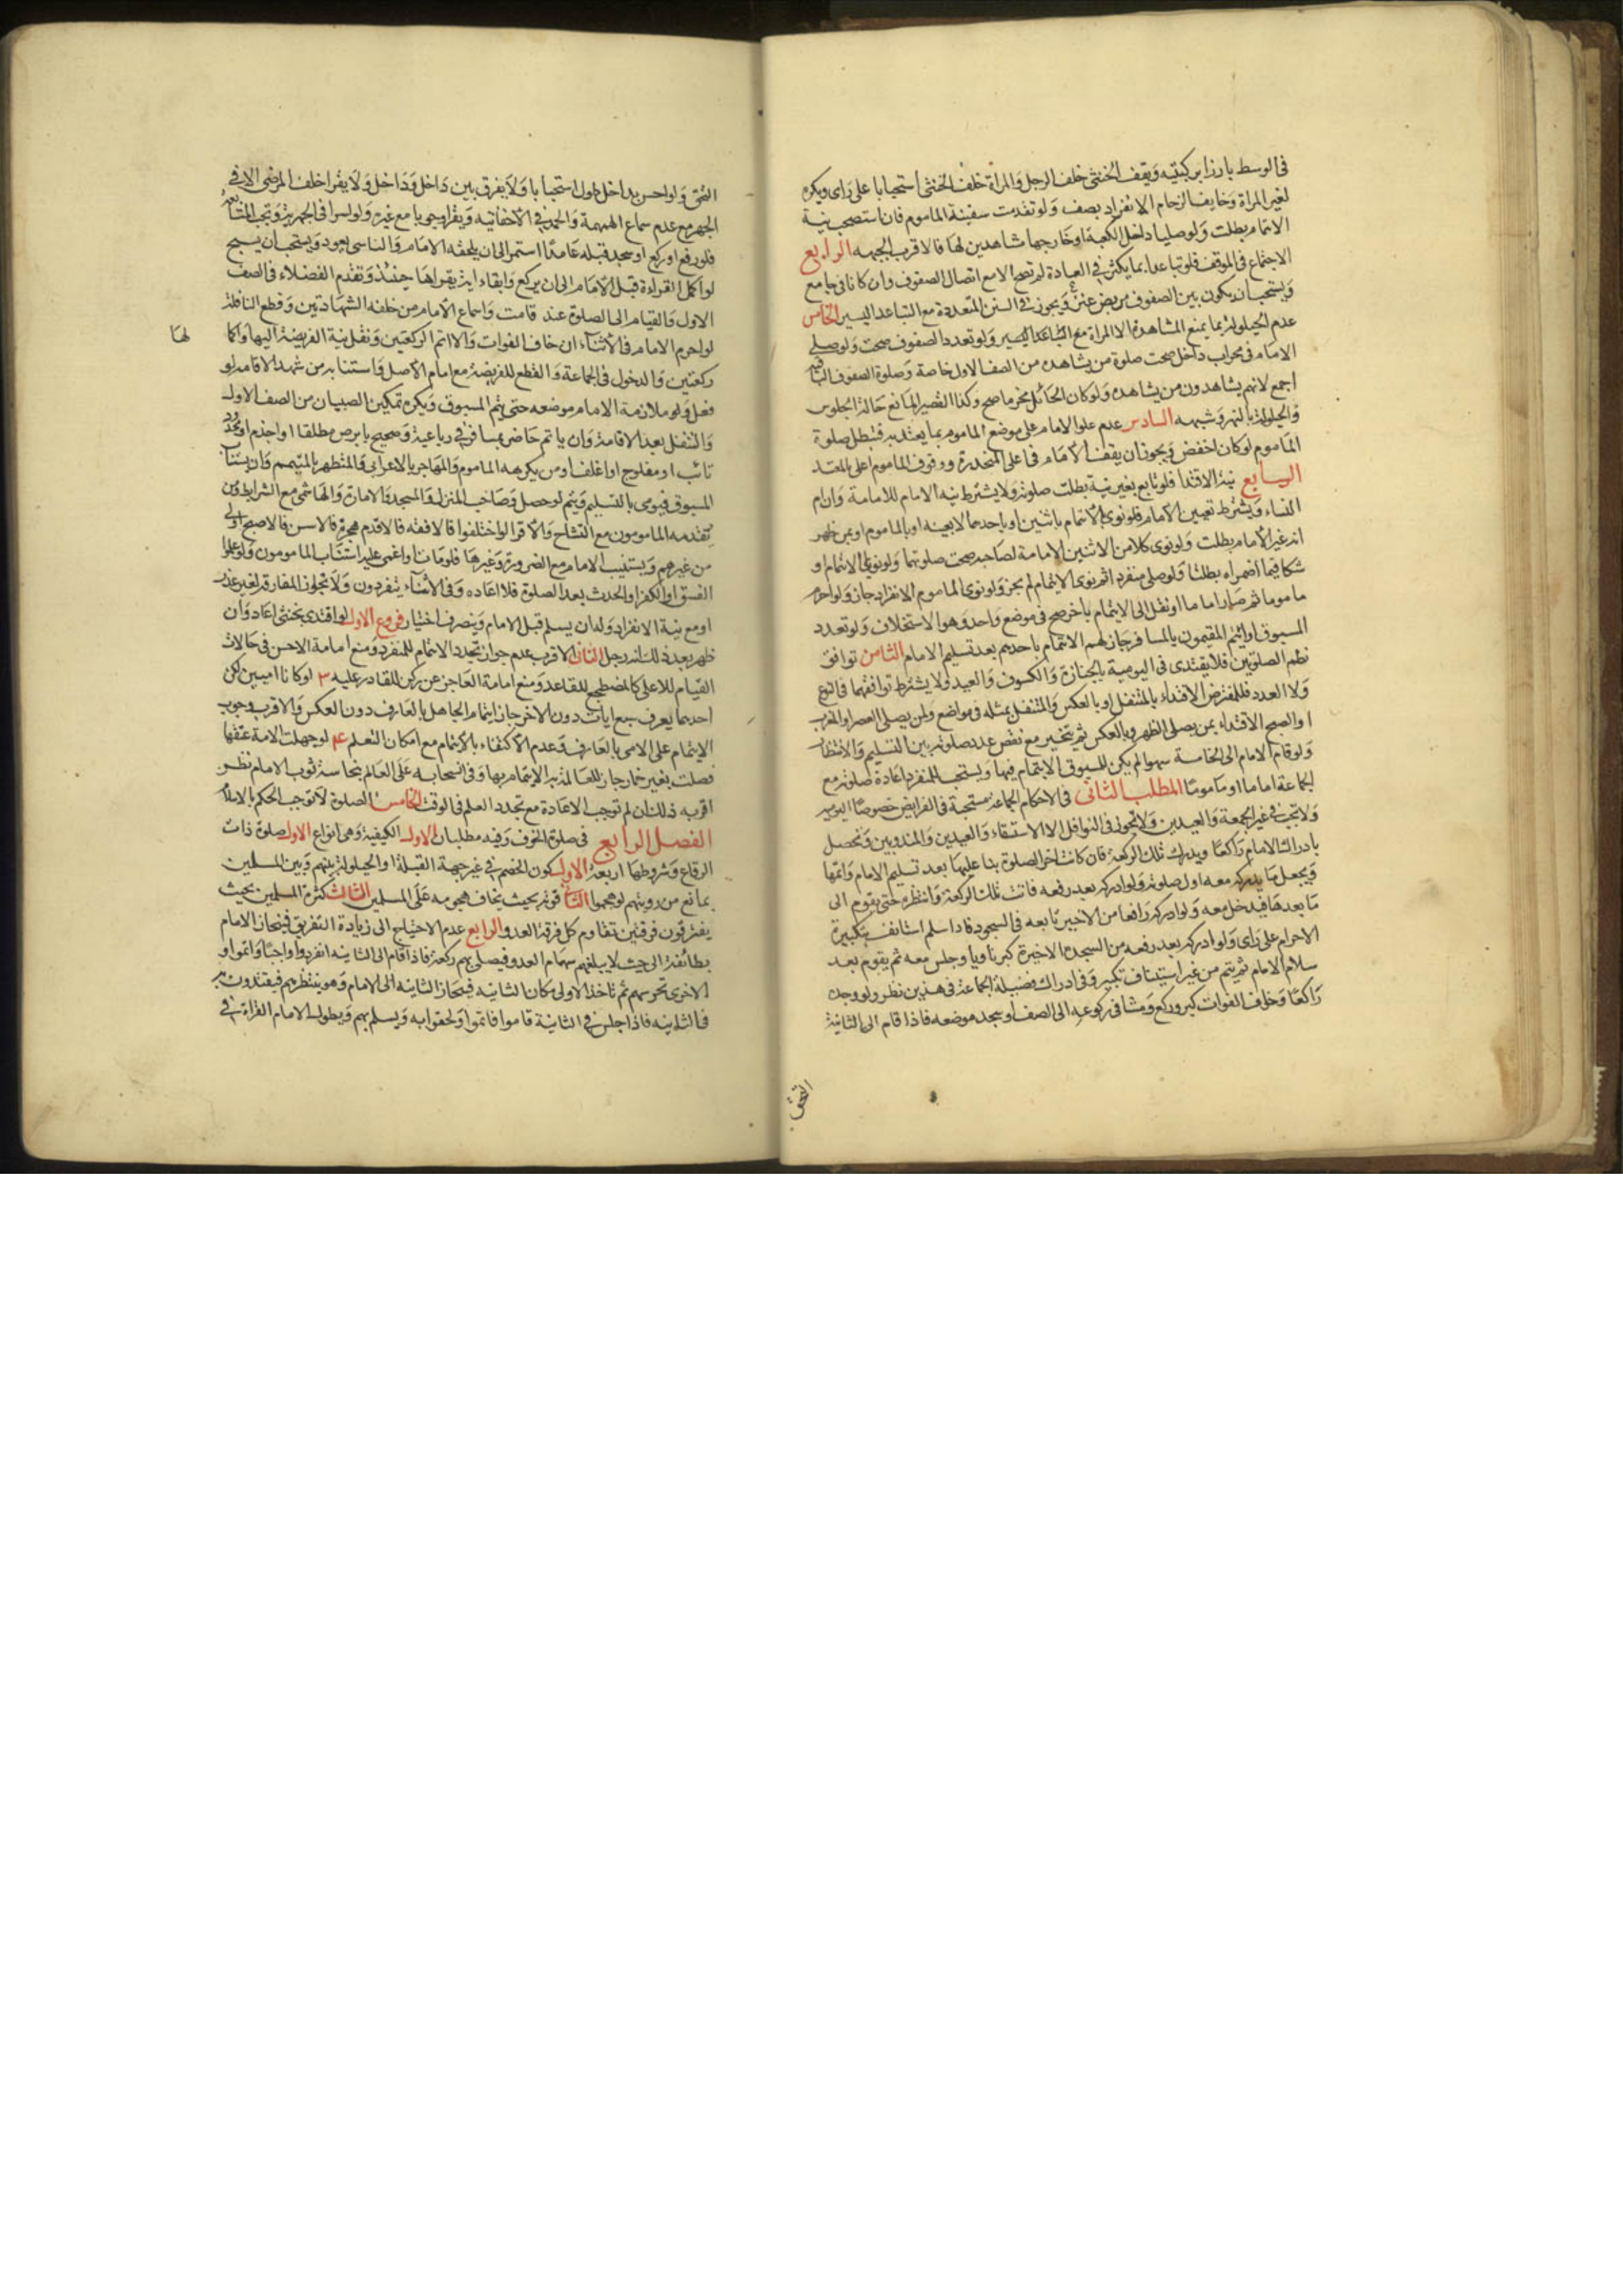 في الوسط بارزا بركبتيه ويقف الخنثى خلف الرجل والمراة خلف الخنثى استحبابا على راى ويكره
لغير المراة وخايف الزحام الانفراد بصف ولو تقدمت سفينة الماموم فان استصحب نية
الائتمام بطلت ولو صليا داخل الكعبة او خارجها مشاهدين لها فالاقرب الجهه الرابع
الاجتماع في الموقف فلو تباعدا بما يكثر في العادة لم تصح الا مع اتصال الصفوف وان كانا في جامع
ويستحب ان يكون بين الصفوف مربض عنز ويجوز في السفن المتعددة مع التباعد اليسير الخامس
عدم الحيلولة بما يمنع المشاهدة الا المراة مع التباعد اليسير ولو تعدد الصفوف صحت ولو صلى
الامام في محراب داخل صحت صلوة من يشاهده من الصف الاول خاصة وصلوة الصفوف الباقيه
اجمع لانهم يشاهدون من يشاهده ولو كان الحائل مخرما صح وكذا القصير المانع حالة الجلوس
والحيلولة بالنهر وشبهه السادس عدم علو الامام على موضع الماموم بما يعتد به فتبطل صلوة
الماموم لو كان اخفض ويجوز ان يقف الامام في اعلى المنحدرة ووقوف الماموم اعلى بالمعتد
السابع نية الاقتدا فلو تابع بغير نية بطلت صلوته ولا يشترط نيه الامام للامامة وان ام
النساء ويشترط تعيين الامام فلو نوى الائتمام باثنين او باحدهما لا بعينه او بالماموم او بمن ظهر
انه غير الامام بطلت ولو نوى كل من الاثنين الامامة لصاحبه صحت صلوتهما ولو نويا الائتمام او
شكا فيما اضمراه بطلتا ولو صلى منفردا ثم نوى الائتمام لم يجز ولو نوى الماموم الانفراد جاز ولو احرم
ماموما ثم صار اماما او نقل الى الائتمام باخر صح في موضع واحد وهو الاستخلاف ولو تعدد
المسبوق او ائتم المقيمون بالمسافر جاز لهم الائتمام باحدهم بعد تسليم الامام الثامن توافق
نظم الصلوتين فلا يقتدى في اليومية بالجنازة والكسوف والعيد ولا يشترط توافقهما في النوع
ولا العدد فللمفترض الاقتداء بالمتنفل او بالعكس والمتنفل بمثله في مواضع ولمن يصلى العصر او المغرب
او الصبح الاقتداء بمن يصلى الظهر وبالعكس ثم يتخير مع نقص عدد صلوته بين التسليم والانتظار
ولو قام الامام الى الخامسة سهوا لم يكن للمسبوق الائتمام فيها ويستحب للمنفرد اعادة صلوته مع
الجماعة اماما او ماموما المطلب الثاني في الاحكام الجماعة مستحبة في الفرايض خصوصا اليوميه
ولا تجب في غير الجمعة والعيدين ولا تجوز في النوافل الا الاستسقاء والعيدين والمندوبين وتحصل
بادراك الامام راكعا ويدرك تلك الركعة فان كانت اخر الصلوة بنا عليها بعد تسليم الامام واتمها
ويجعل ما يدركه معه اول صلوته ولو ادركه بعد رفعه فاتت تلك الركعة وانتظره حتى يقوم الى
ما بعدها فيدخل معه ولو ادركه رافعا من الاخير تابعه في السجود فاذا سلم استانف بتكبيرة
الاحرام على راى ولو ادركه بعد رفعه من السجدة الاخيرة كبر ناويا وجلس معه ثم يقوم بعد
سلام الامام ثم يتم من غير استيناف تكبير وفي ادراك فضيلة الجماعة في هذين نظر ولو وجده
راكعا وخاف الفوات كبر وركع ومشا في ركوعه الى الصف او سجد موضعه فاذا قام الى الثانية
التحق
التحق ولو احس بداخل طول استحبابا ولا يفرق بين داخل وداخل ولا يقرا خلف المرضى الا في
الجهر مع عدم سماع الهمهمة والحمد في الاخفاتيه ويقرا وجوبا مع غيره ولو سرا في الجهرية وتجب المتابعه
فلو رفع او ركع او سجد قبله عامدا استمر الى ان يلحقه الامام والناسي يعود ويستحب ان يسبح
لو اكمل القراءة قبل الامام الى ان يركع وابقاء اية يقراها حينئذ وتقدم الفضلاء في الصف
الاول والقيام الى الصلوة عند قامت واسماع الامام من خلفه الشهادتين وقطع النافلة
لو احرم الامام في الاثناء ان خاف الفوات والا اتم الركعتين ونقل نية الفريضة اليها واكمالها
ركعتين والدخول في الجماعة والقطع للفريضة مع امام الاصل واستنابة من شهد الاقامة لو
فعل ولو ملازمة الامام موضعه حتى يتم المسبوق ويكره تمكين الصبيان من الصف الاول
والتنفل بعد الاقامة وان ياتم حاضر بمسافر في رباعية وصحيح بابرص مطلقا او اجذم او محدود
تائب او مفلوج او اغلف او من يكرهه الماموم والمهاجر بالاعرابي والمتطهر بالمتيمم وان يستناب
المسبوق فيومى بالتسليم ويتم لو حصل وصاحب المنزل والمسجد والامارة والهاشمي مع الشرايط ومن
يقدمه المامومون مع التشاح والاقرا لو اختلفوا فالافقه فالاقدم هجرة فالاسن فالاصبح اولى
من غيرهم ويستنيب الامام مع الضرورة وغيرها فلو مات او اغمى عليه استناب المامومون ولو علموا
الفسق او الكفر او الحدث بعد الصلوة فلا اعاده وفي الاثناء ينفردون ولا تجوز المفارقة لغير عذر
او مع نية الانفراد وله ان يسلم قبل الامام وينصرف اختيارا فروع الاول لو اقتدى بخنثى اعاد وان
ظهر بعد ذلك انه رجل الثاني الاقرب عدم جواز تجدد الائتمام للمنفرد ومنع امامة الاخس في حالات
القيام للاعلى كالمضطجع للقاعد ومنع امامة العاجز عن ركن للقادر عليه ٣ لو كانا اميين لكن
احدهما يعرف سبع ايات دون الاخر جاز ائتمام الجاهل بالعارف دون العكس والاقرب وجوب
الائتمام على الامي بالعارف وعدم الاكتفاء بالائتمام مع امكان التعلم ۴ لو جهلت الامة عتقها
فصلت بغير خمار جاز للعالمة به الائتمام بها وفي انسحابه على العالم بنجاسة ثوب الامام نظر
اقربه ذلك ان لم توجب الاعادة مع تجدد العلم في الوقت الخامس الصلوة لا توجب الحكم بالاسلام
الفصل الرابع في صلوة الخوف وفيه مطلبان الاول الكيفية وهي انواع الاول صلوة ذات
الرقاع وشروطها اربعة الاول كون الخصم في غير جهة القبلة او الحيلولة بينهم وبين المسلمين
بمانع من رويتهم لو هجموا الثاني قوته بحيث يخاف هجومه على المسلمين الثالث كثرة المسلمين بحيث
يفترقون فرقتين تقاوم كل فرقة العدو الرابع عدم الاحتياج الى زيادة التفريق فينحاز الامام
بطائفة الى حيث لا يبلغهم سهام العدو فيصلي بهم ركعة فاذا قام الى الثانيه انفردوا واجبا واتموا و
الاخرى تحرسهم ثم تاخذ الاولى مكان الثانيه فينحاز الثانيه الى الامام وهو ينتظرهم فيقتدون به
في الثانيه فاذا جلس في الثانية قاموا فاتموا ولحقوا به ويسلم بهم ويطول الامام القراءة في